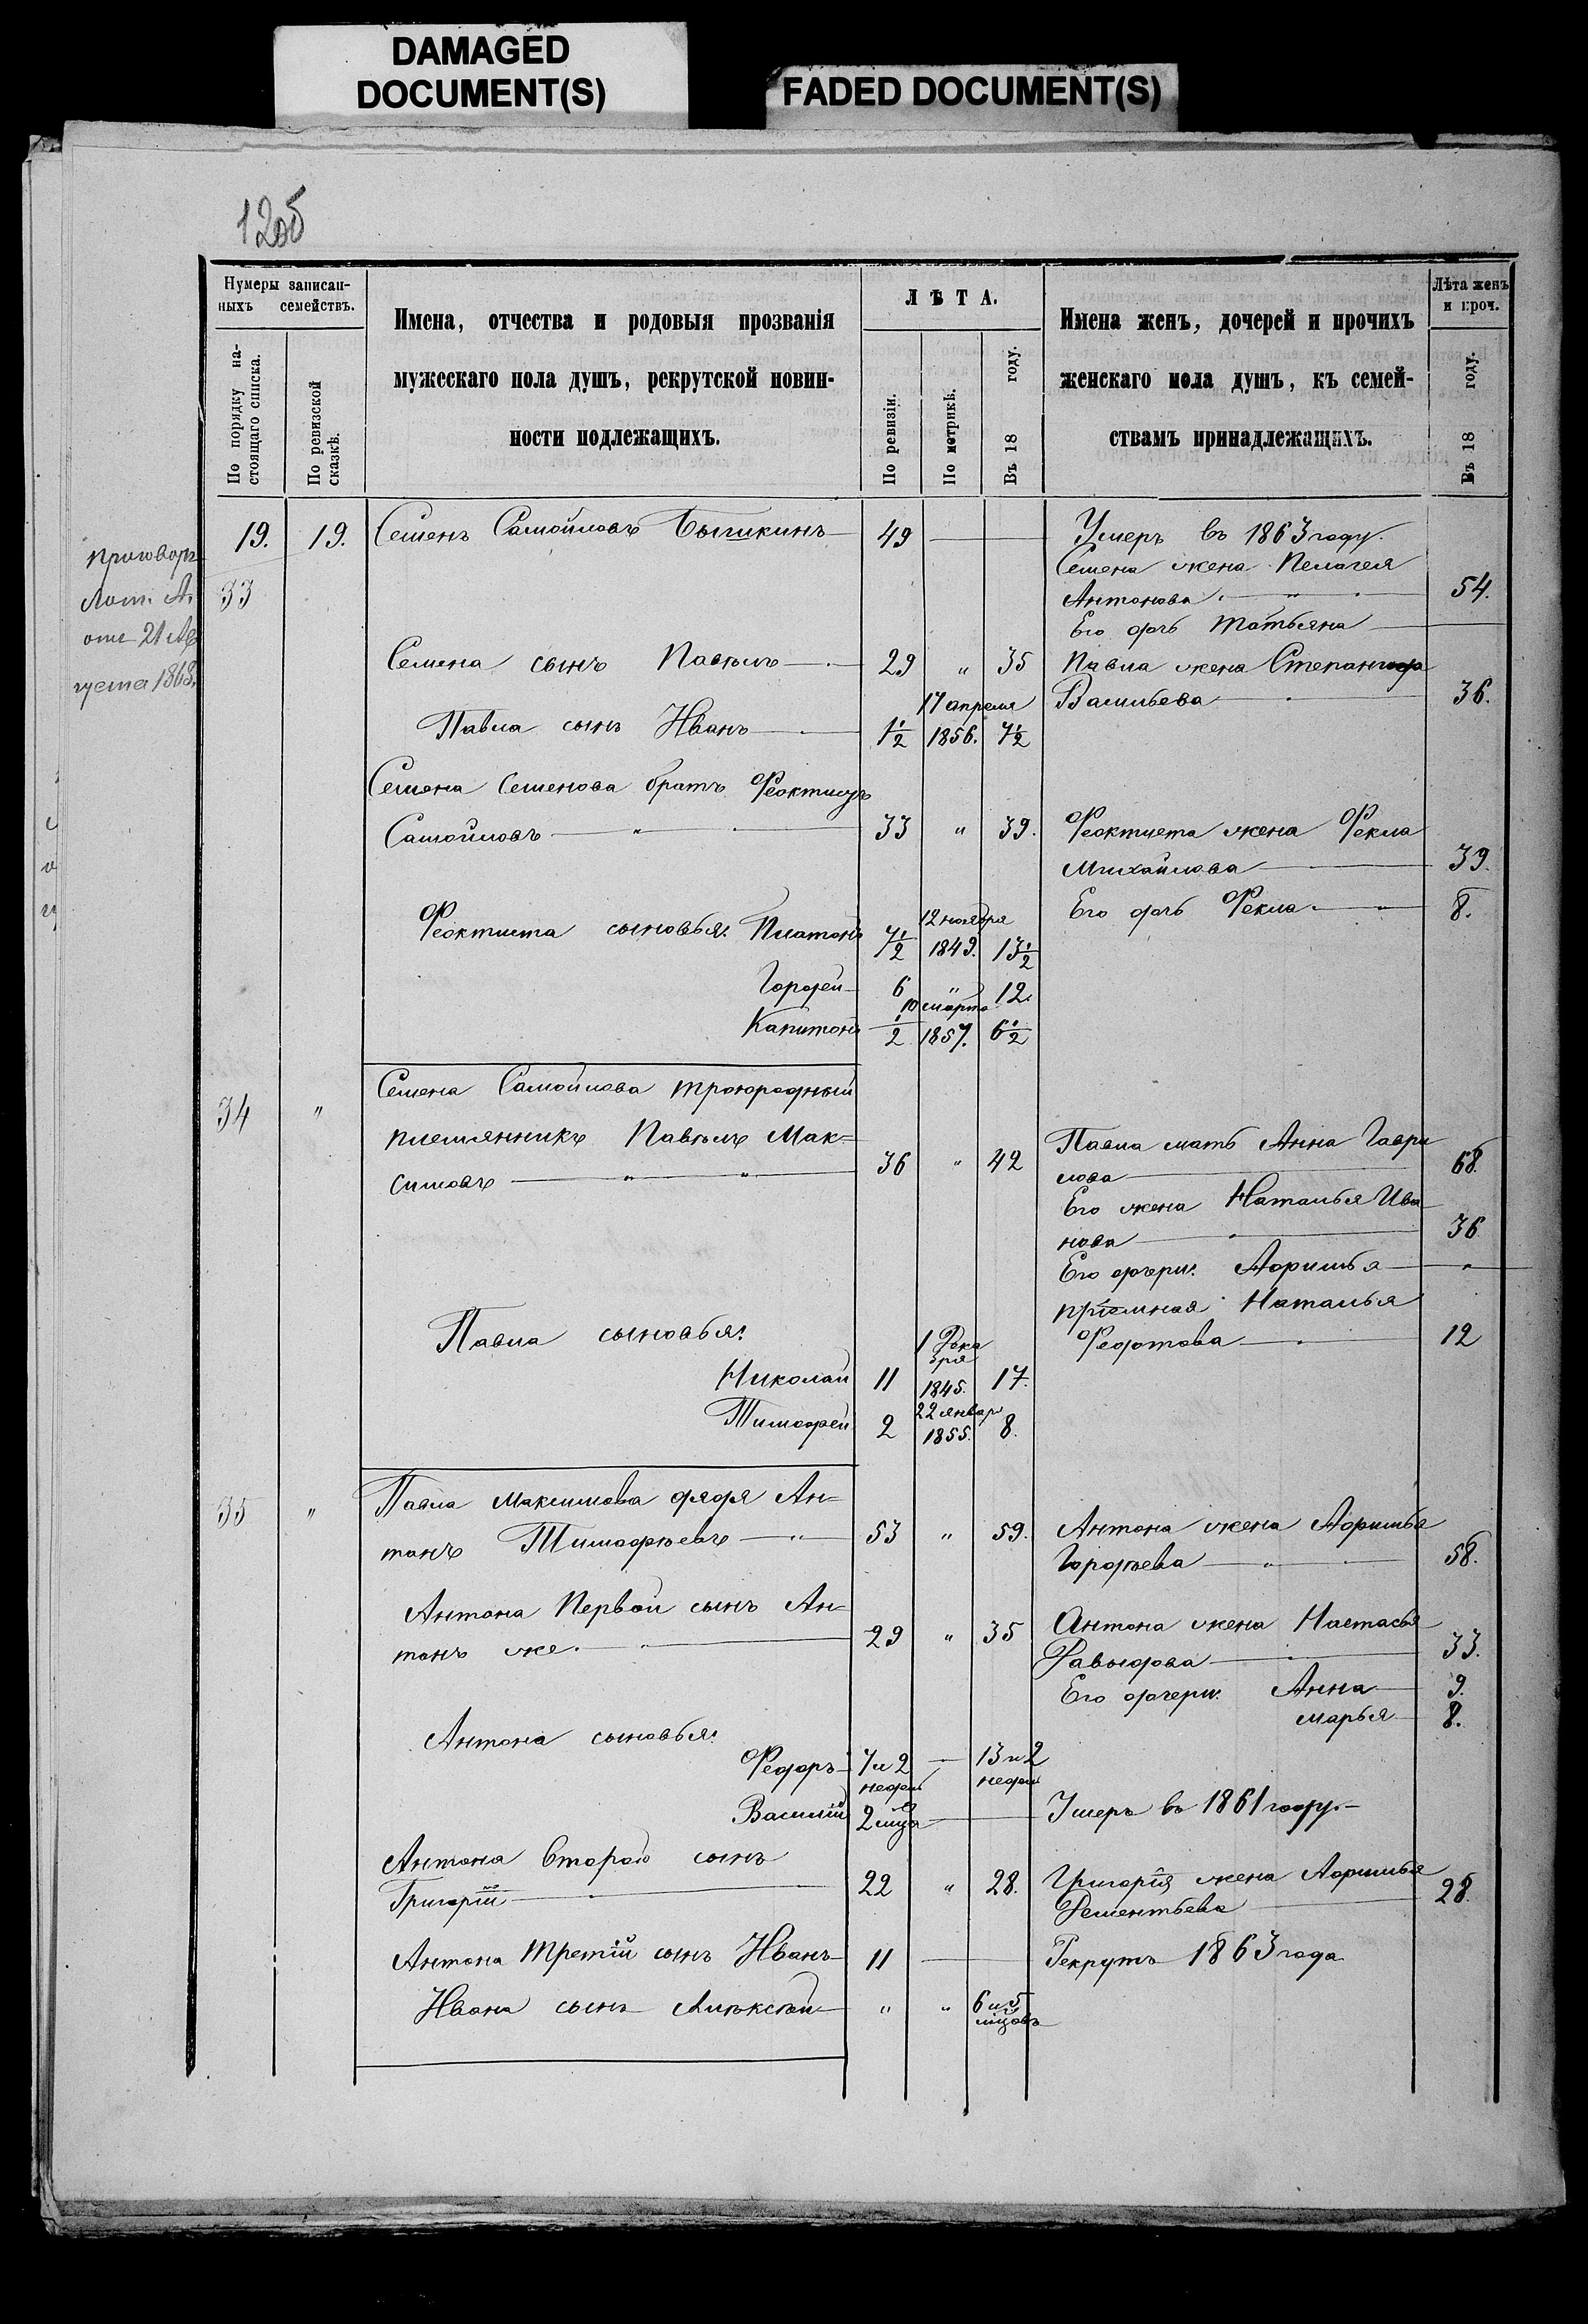 DAMAGED
DOCUMENT(S)
FADED DOCUMENT(S)
12об
Нумеры записан-
ныхъ семействъ.
По порядку на-
стоящаго списка.
По ревизской
сказкѣ.
Имена, отчества и родовыя прозванія
мужескаго пола душъ, рекрутской повин-
ности подлежащихъ.
ЛѢТА.
По ревизіи.
По метрикѣ.
Въ 18 году.
Имена женъ, дочерей и прочихъ
женскаго пола душъ, къ семей-
ствамъ принадлежащихъ.
Лѣта женъ
и проч.
Въ 18 году.
приговоръ
отъ 21 Ав
густа 1863.
19. 19. Семенъ Самойловъ 49 — Умеръ въ 1863 году.
33
Семена жена Пелагея
Антонова 54.
Его дочь Татьяна —
Семена сынъ Павелъ — 29 " 35 Павла жена Степанида
Васильева — 36.
Павла сынъ Иванъ — 1½ 17 апреля 1856. 7½
Семена Семенова братъ Феоктистъ
Самойловъ — 33 " 39. Феоктиста жена Фекла
Михайлова — 39.
Его дочь Фекла — 8.
Феоктиста сыновья: Платонъ 7½ 12 ноября 1849. 13½
Гордей 6 " 12.
Капитонъ ½ 10 марта 1857. 6½
34 " Семена Самойлова троюродный
племянникъ Павелъ Мак=
симовъ — 36 " 42 Павла мать Анна Гаври
лова — 68.
Его жена Наталья Ива
нова — 36
Его дочери: Дарилья — "
пріемная Наталья
Федотова — 12
Павла сыновья:
Николай 11 1 Дека
бря
1845. 17.
Тимофей 2 22 январ
1855. 8.
35 " Павла Максимова дядя Ан=
тонъ Тимофѣевъ — 53 " 59. Антона жена
Гордѣева — 58.
Антона Первой сынъ Ан=
тонъ же. — 29 " 35 Антона жена Настасья
Давыдова — 33.
Его дочери: Анна — 9.
Марья — 8.
Антона сыновья:
Федоръ 7 и 2 недел — 13 и 2 недел
Василій 2 мца — Умеръ въ 1861 году. —
Антона Второй сынъ
Григорій — 22 " 28. Григорія жена
Дементьева 28.
Антона Третій сынъ Иванъ — 11 — Рекрутъ 1863 года
Ивана сынъ Алексѣй — " " 6 и 5
мцовъ